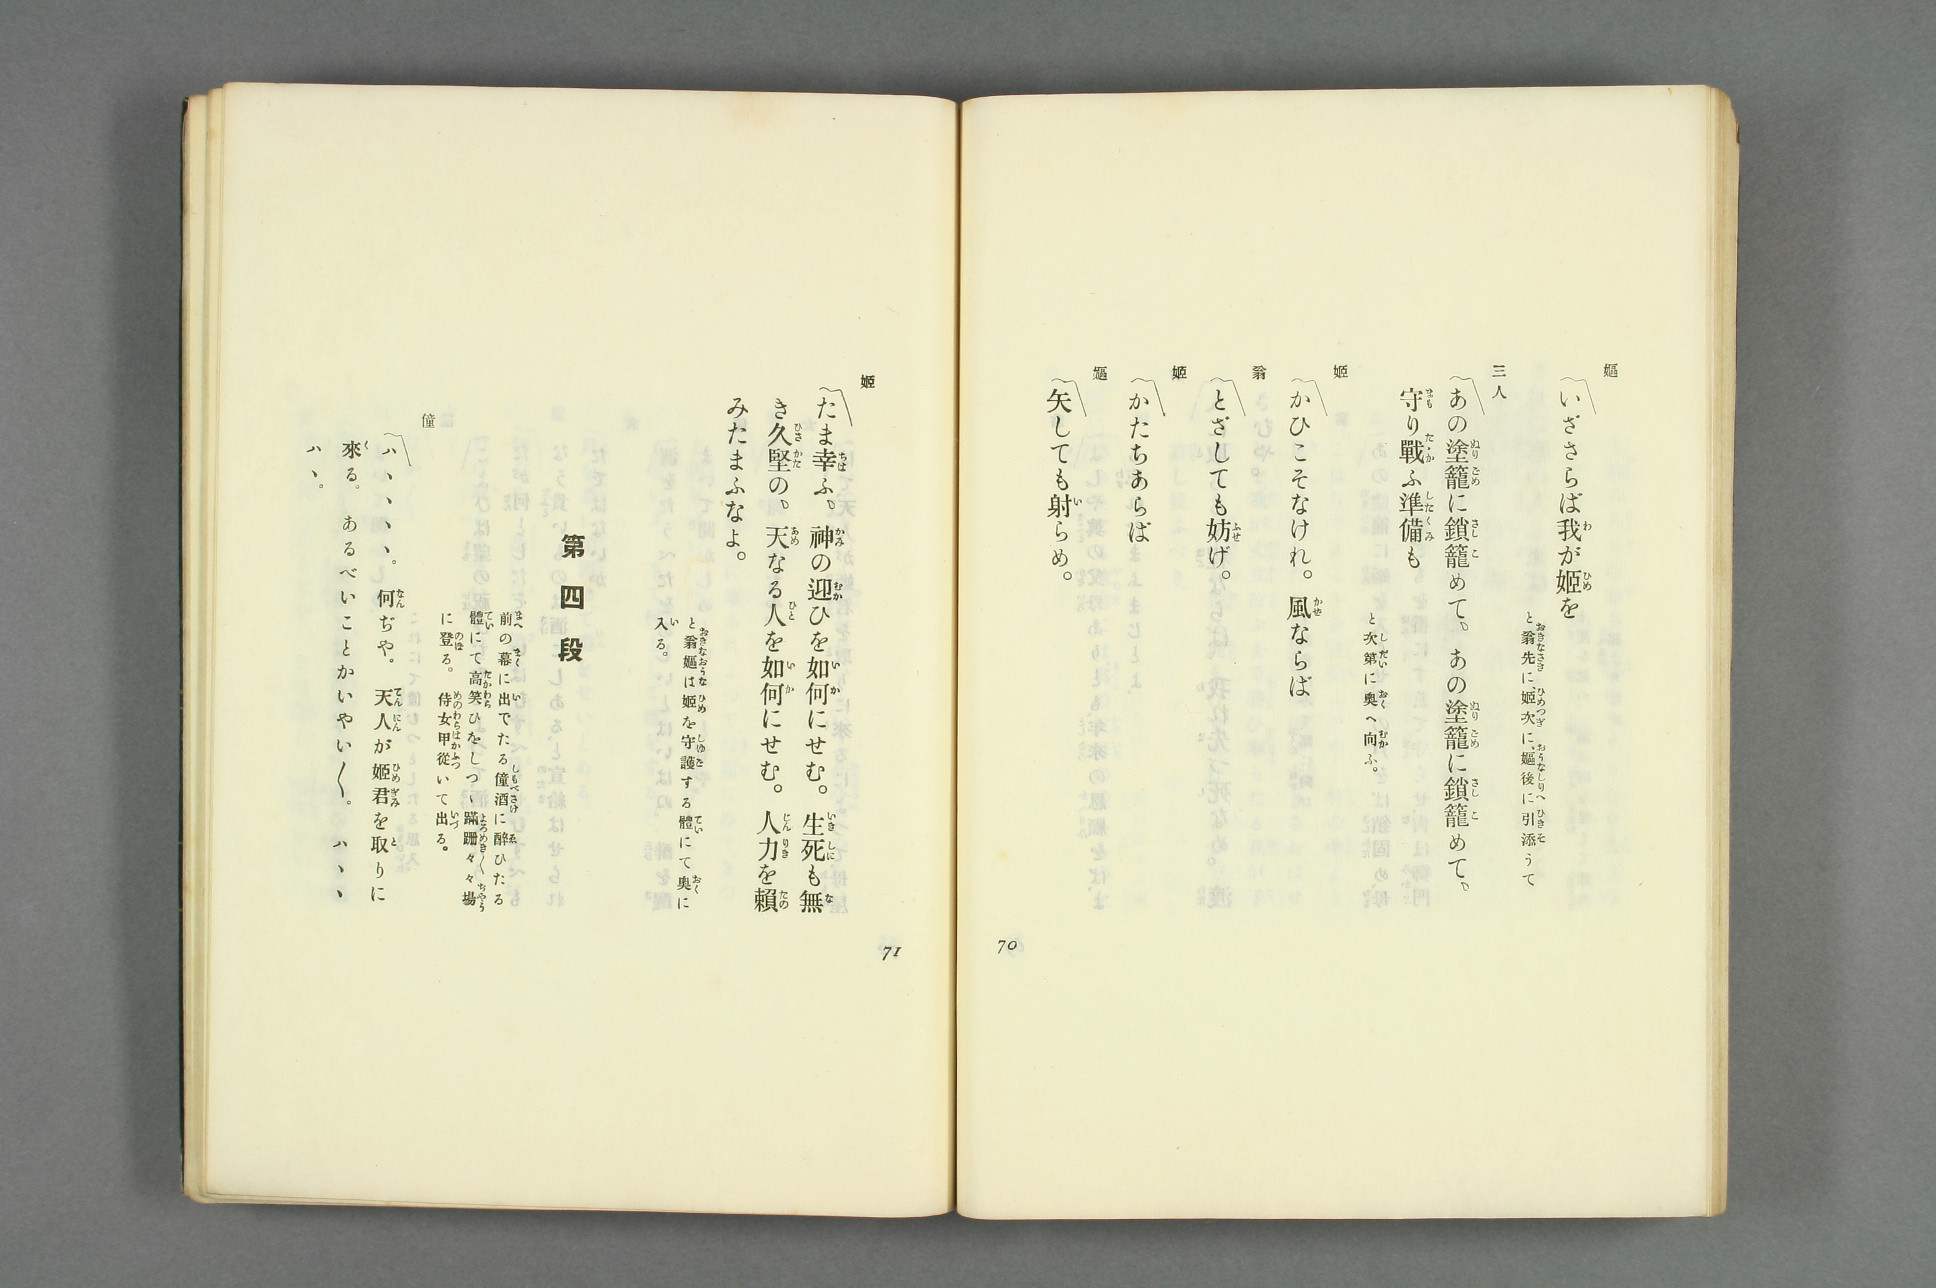 嫗
いざさらば我が姫を
と翁先に、姫次に、嫗後に引添うて
三人
あの塗籠に鎖籠めて、あの塗籠に鎖籠めて、
守り戰ふ準備も
と次第に奥へ向ふ。
姫
かひこそなけれ。風ならば
翁
とざしても妨げ。
姫
かたちあらば
嫗
矢しても射らめ。
70
姫
たま幸ふ、神の迎ひを如何にせむ。生死も無
き久堅の、天なる人を如何にせむ。人力を賴
みたまふなよ。
と翁嫗は姫を守護する體にて奥に
入る。
第四段
前の幕に出でたる僮酒に醉ひたる
體にて高笑ひをしつゝ蹣跚々々場
に登る。侍女甲從いて出る。
僮
ハヽヽヽ。何ぢや。天人が姫君を取りに
來る。あるべいことかいやい〱。ハヽヽ
ハヽ。
71